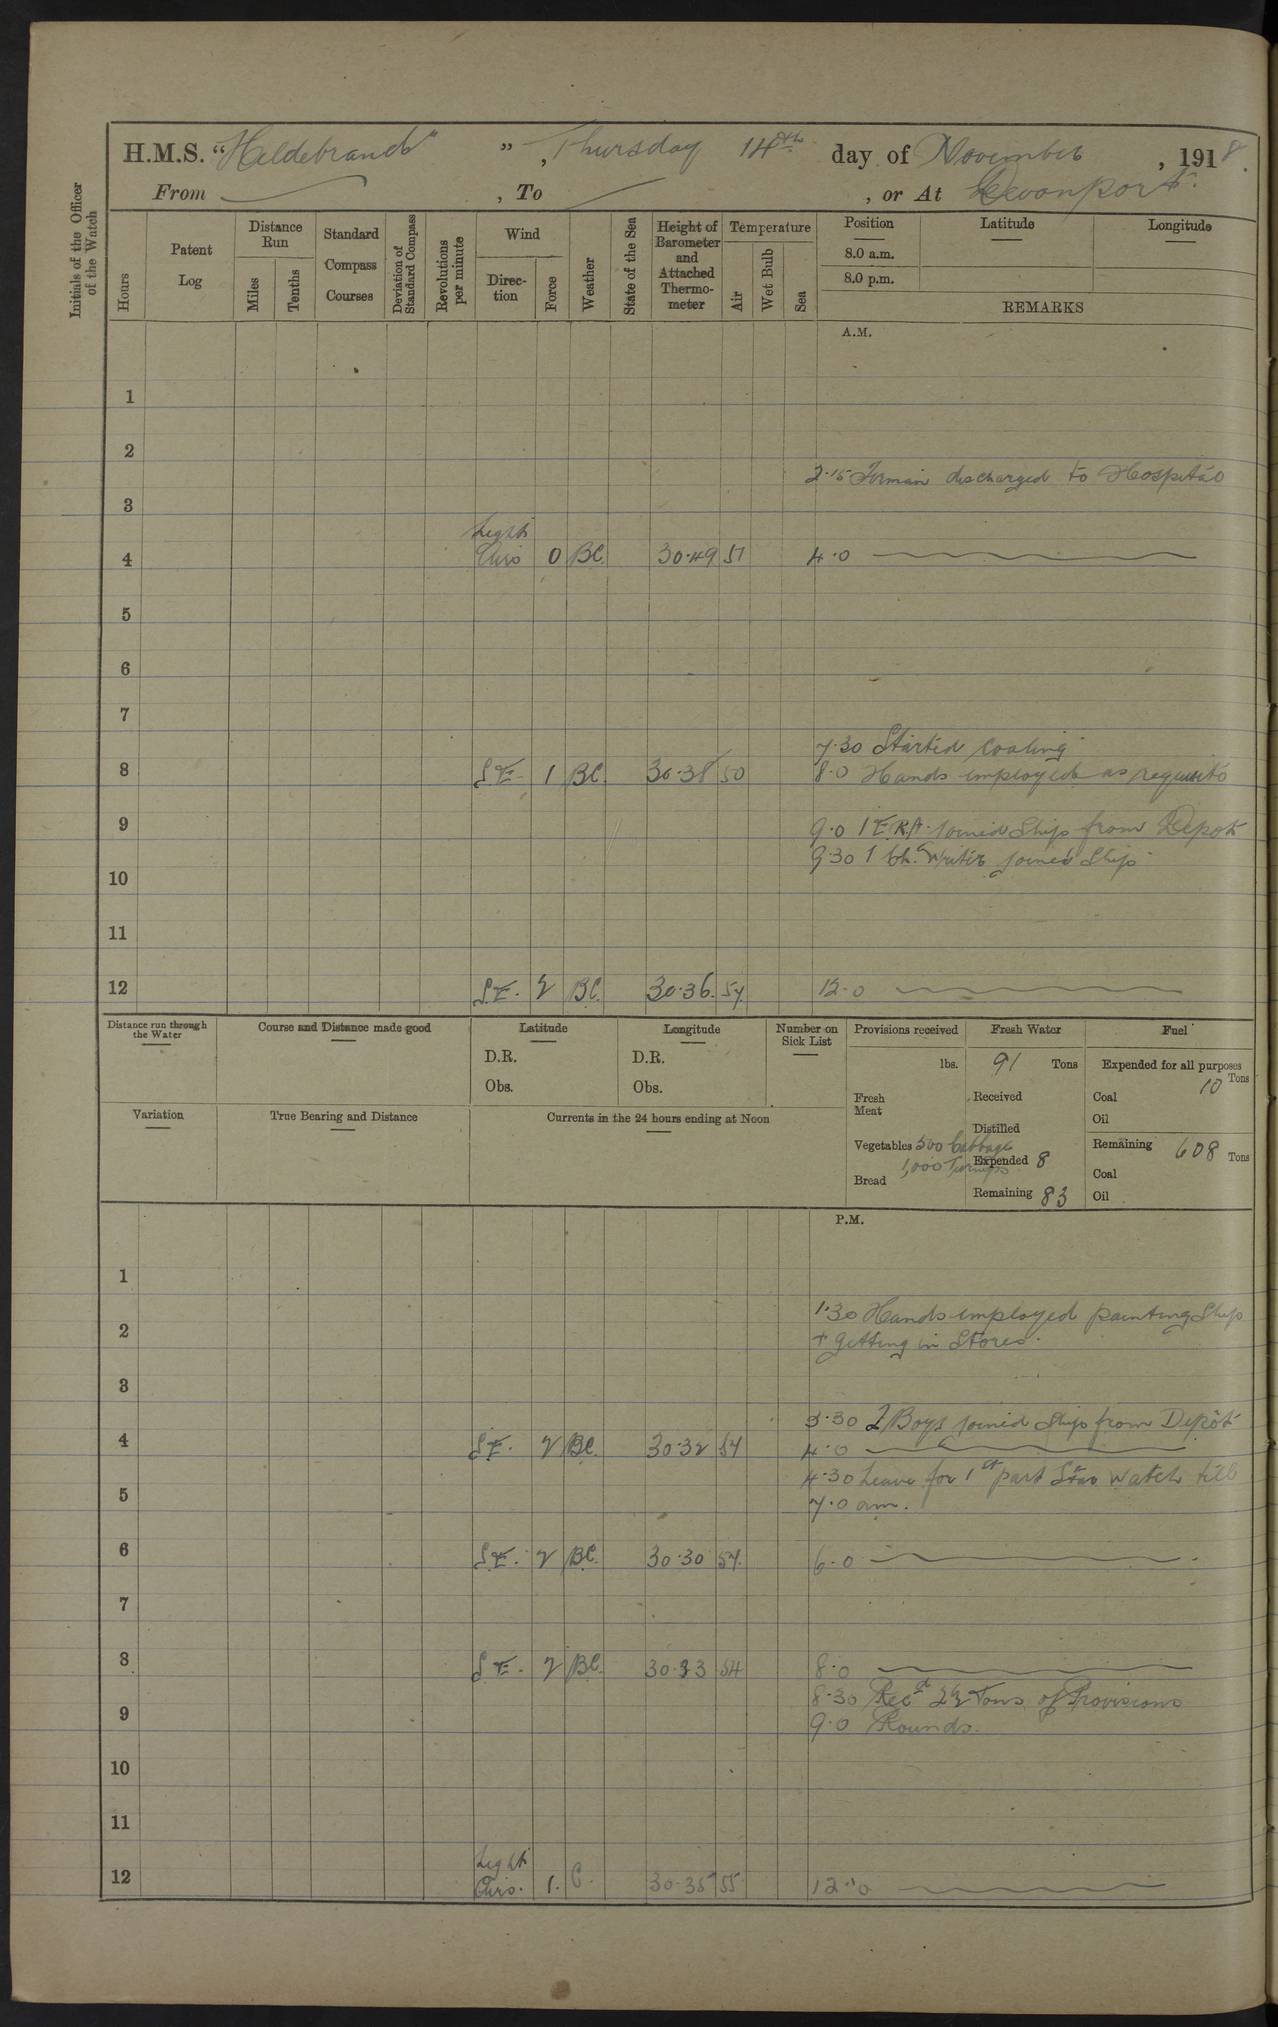 H.M.S. “Hildebrand” ”, Thursday 14th day of November, 1918.
From , To , or At Devonport.
Initials of the Officer of the Watch
Hours
Patent Log
Distance Run
Miles
Tenths
Standard Compass Courses
Deviation of Standard Compass
Revolutions per minute
Wind
Direction
Force
Weather
State of the Sea
Height of Barometer and Attached Thermometer
Temperature
Air
Wet Bulb
Sea
Position Latitude Longitude
8.0 a.m.
8.0 p.m.
REMARKS
A.M.
1
2
2.15 discharged to Hospital
3
Light
4 Airs 0 BC. 30.49 51 4.0
5
6
7
7.30 Started Coaling
8 S.E. 1 BC. 30.38 50 8.0 Hands employed as requisite
9 9.0 1 E.R.A. joined Ship from Depot
9.30 1 Ch. Writer joined Ship
10
11
12 S.E. 2 BC. 30.36. 54 12.0
Distance run through the Water
Course and Distance made good
Latitude
D.R.
Obs.
Longitude
D.R.
Obs.
Number on Sick List
Provisions received
lbs.
Fresh Meat
Vegetables 500 Cabbage
1,000 Turnips
Bread
Fresh Water
91 Tons
Received
Distilled
Expended 8
Remaining 83
Fuel
Expended for all purposes
10 Tons
Coal
Oil
Remaining 608 Tons
Coal
Oil
Variation
True Bearing and Distance
Currents in the 24 hours ending at Noon
P.M.
1
1.30 Hands employed painting Ship
2 + getting in Stores.
3
3.30 2 Boys joined Ship from Depôt
4 S.E. 2 BC. 30.32 54 4.0
4.30 Leave for 1st part Star watch till
5 7.0 am.
6 S.E. 2 BC. 30.30 54. 6.0
7
8 S.E. 2 BC. 30.33 54 8.0
8.30 Recd 2½ Tons of Provisions
9 9.0 Rounds.
10
11
Light
12 Airs. 1. C. 30.35 55 12.0